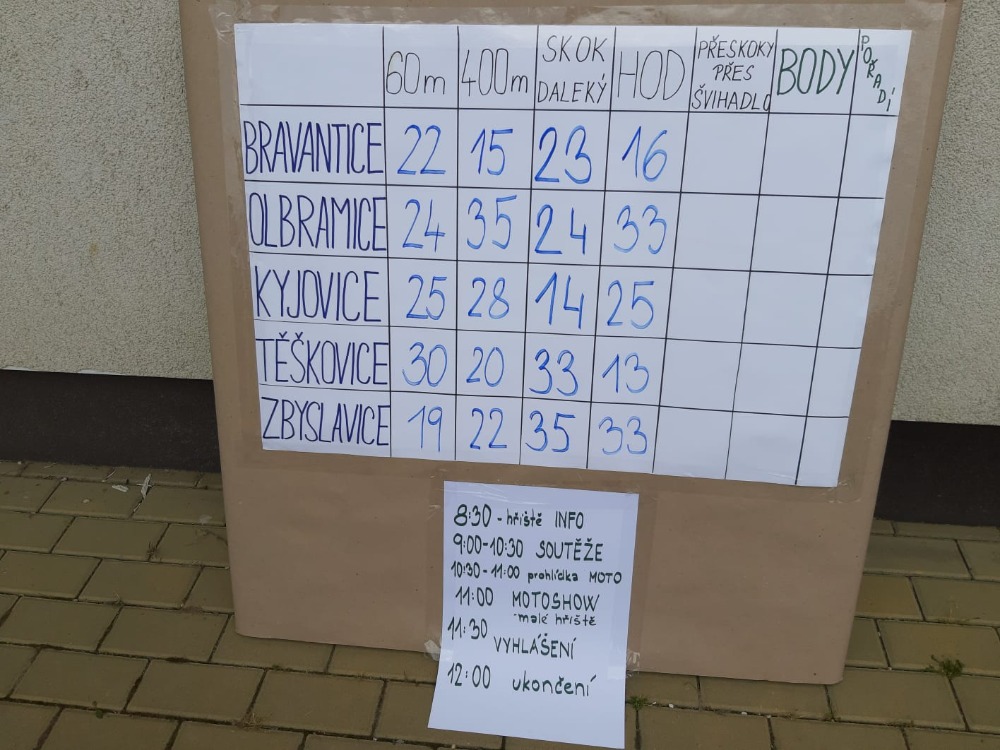 60m 400m SKOK DALEKÝ HOD PŘESKOKY PŘES ŠVIHADLO BODY POŘADÍ
BRAVANTICE 22 15 23 16
OLBRAMICE 24 35 24 33
KYJOVICE 25 28 14 25
TĚŠKOVICE 30 20 33 13
ZBYSLAVICE 19 22 35 33
8:30 - hřiště INFO
9:00-10:30 SOUTĚŽE
10:30-11:00 prohlídka MOTO
11:00 MOTOSHOW
-malé hřiště
11:30 VYHLÁŠENÍ
12:00 ukončení